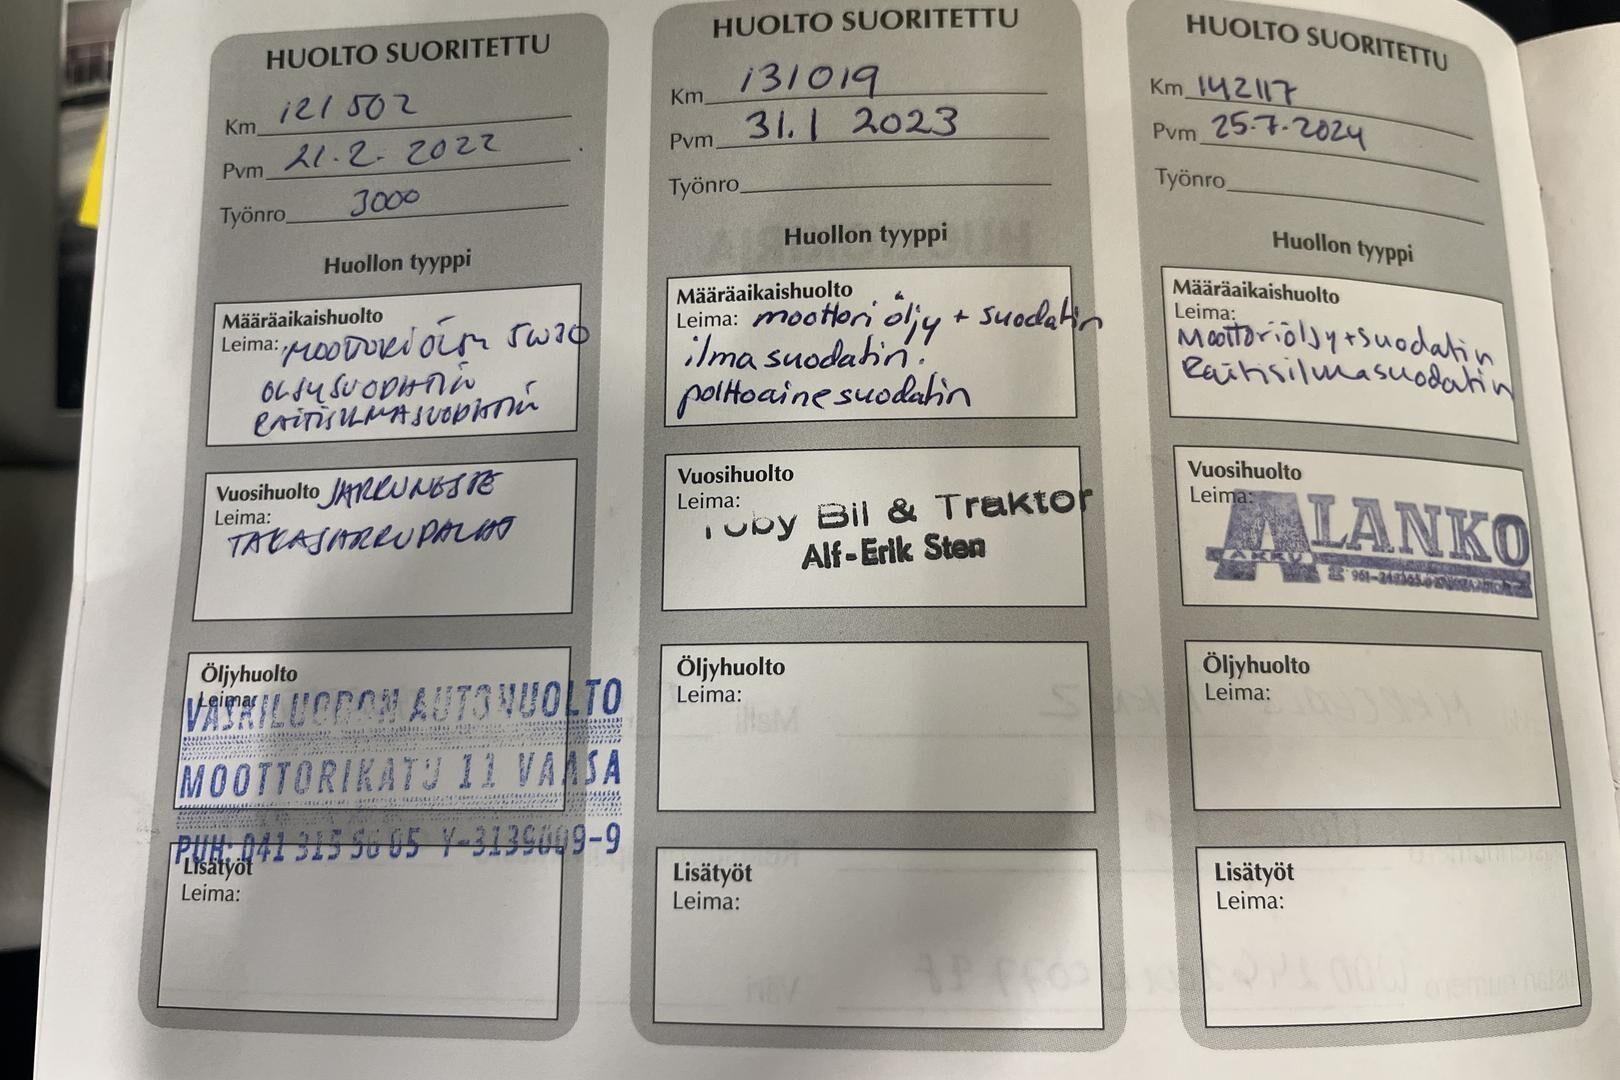 HUOLTO SUORITETTU
Km 121 502
Pvm 21.2. 2022
Työnro 3000
Huollon tyyppi
Määräaikaishuolto
Leima: MOOTTORIÖLJY 5W30
ÖLJYSUODATIN
RAITISILMASUODATIN
Vuosihuolto JARRUNESTE
Leima:
TAKAJARRUPALAT
Öljyhuolto
Leima:
VASKILUODON AUTOHUOLTO
MOOTTORIKATU 11 VAASA
PUH: 041 315 56 05
Lisätyöt
Leima:
HUOLTO SUORITETTU
Km 131019
Pvm 31.1 2023
Työnro
Huollon tyyppi
Määräaikaishuolto
Leima: moottori öljy + suodatin
ilmasuodatin.
polttoainesuodatin
Vuosihuolto
Leima:
Bil & Traktor
Alf-Erik Sten
Öljyhuolto
Leima:
Lisätyöt
Leima:
HUOLTO SUORITETTU
Km 142117
Pvm 25.7.2024
Työnro
Huollon tyyppi
Määräaikaishuolto
Leima:
Moottoriöljy+suodatin
Raitisilmasuodatin
Vuosihuolto
Leima:
ALANKO
AKKU
Öljyhuolto
Leima:
Lisätyöt
Leima: